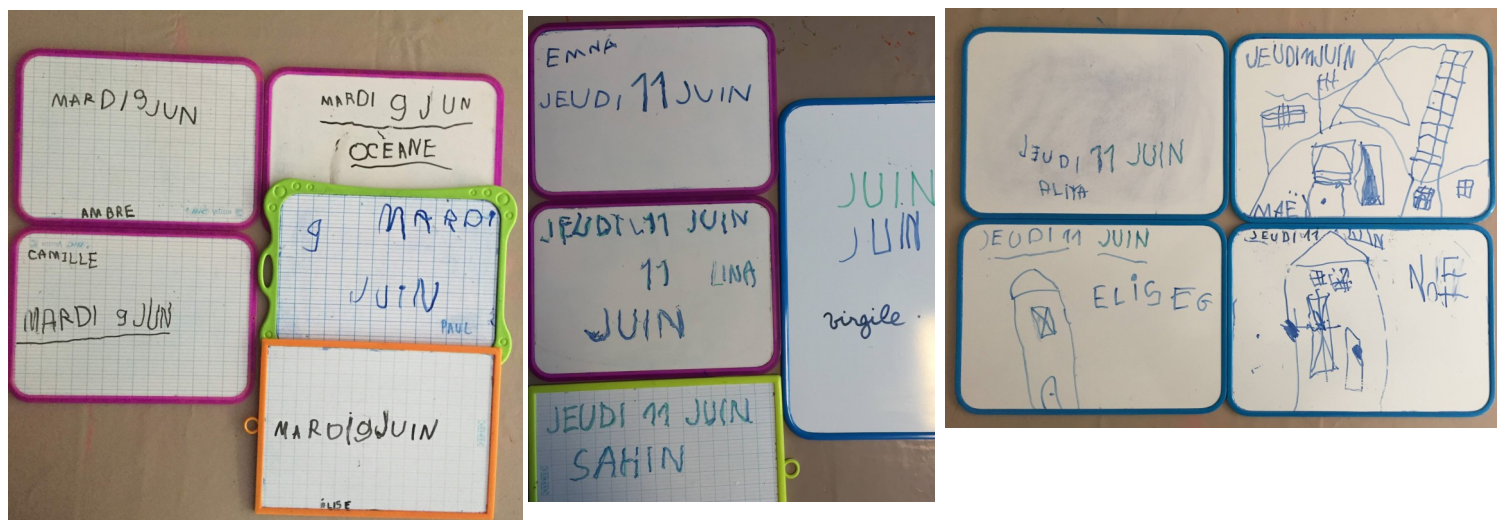 MARDI 9 JUN
AMBRE
MARDI 9 JUN
OCÈANE
CAMILLE
MARDI 9 JUN
9 MARDI
JUIN
PAUL
MARDI 9 JUIN
ÉLISE
EMNA
JEUDI 11 JUIN
JEUDI 11 JUIN
11 LINA
JUIN
JEUDI 11 JUIN
SAHIN
JUIN
JUIN
virgile.
JEUDI 11 JUIN
ALIYA
JEUDI 11 JUIN
MAË
JEUDI 11 JUIN
ELISEG
JEUDI 11 JUIN